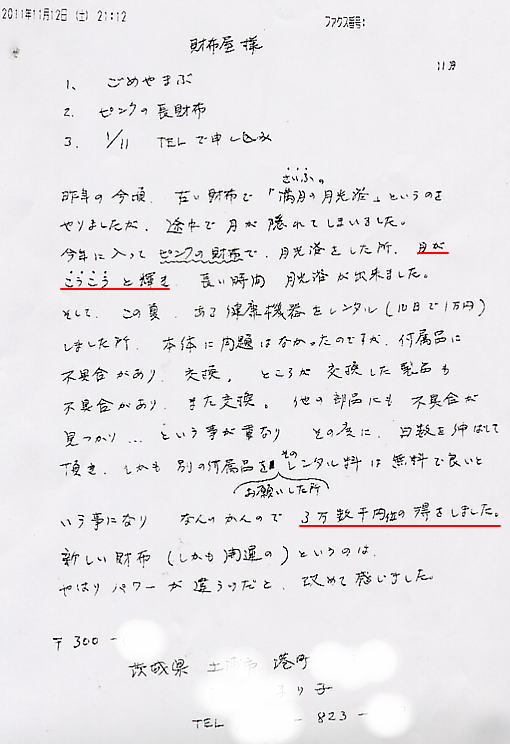 2011年11月12日（土）21:12
ファクス番号：
財布屋 様
11月
1、 ごめやまぶ
2. ピンクの長財布
3. 1/11 TELで申し込み
さいふの
昨年の今頃、古い財布で「満月の月光浴」というのを
やりましたが、途中で月が隠れてしまいました。
今年に入って ピンクの財布で、月光浴をした所、月が
こうこうと輝き、長い時間 月光浴が出来ました。
そして、この夏、ある健康機器をレンタル(10日で1万円)
しました所、本体に問題はなかったのですが、付属品に
不具合があり、交換。ところが交換した製品も
不具合があり、また交換。他の部品にも不具合が
見つかり…という事が重なり その度に、日数を伸ばして
頂き、しかも別の付属品を その レンタル料は無料で良いと
お願いした所
いう事になり なんのかんので 3万数千円位の得をしました。
新しい財布(しかも開運の)というのは、
やはりパワーが違うのだと、改めて感じました。
〒300-
茨城県 土浦市 港町
り子
TEL - 823 -